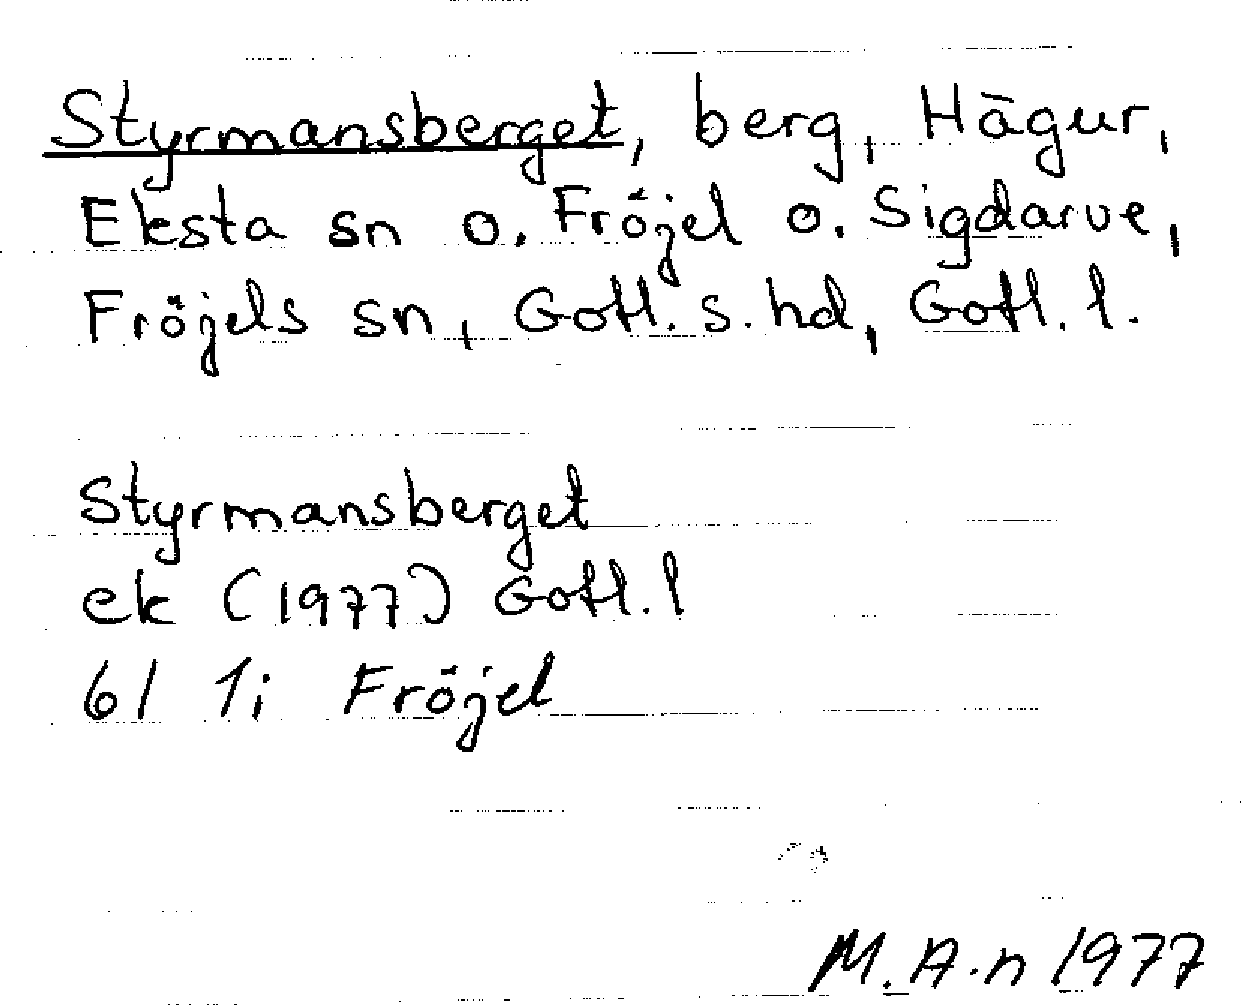 Styrmansberget, berg, Hägur,
Eksta sn o. Fröjel o. Sigdarve,
Fröjels sn, Gotl. s. hd, Gotl. l.
Styrmansberget
ek (1977) Gotl. l
6I 1i Fröjel
M.A.n 1977